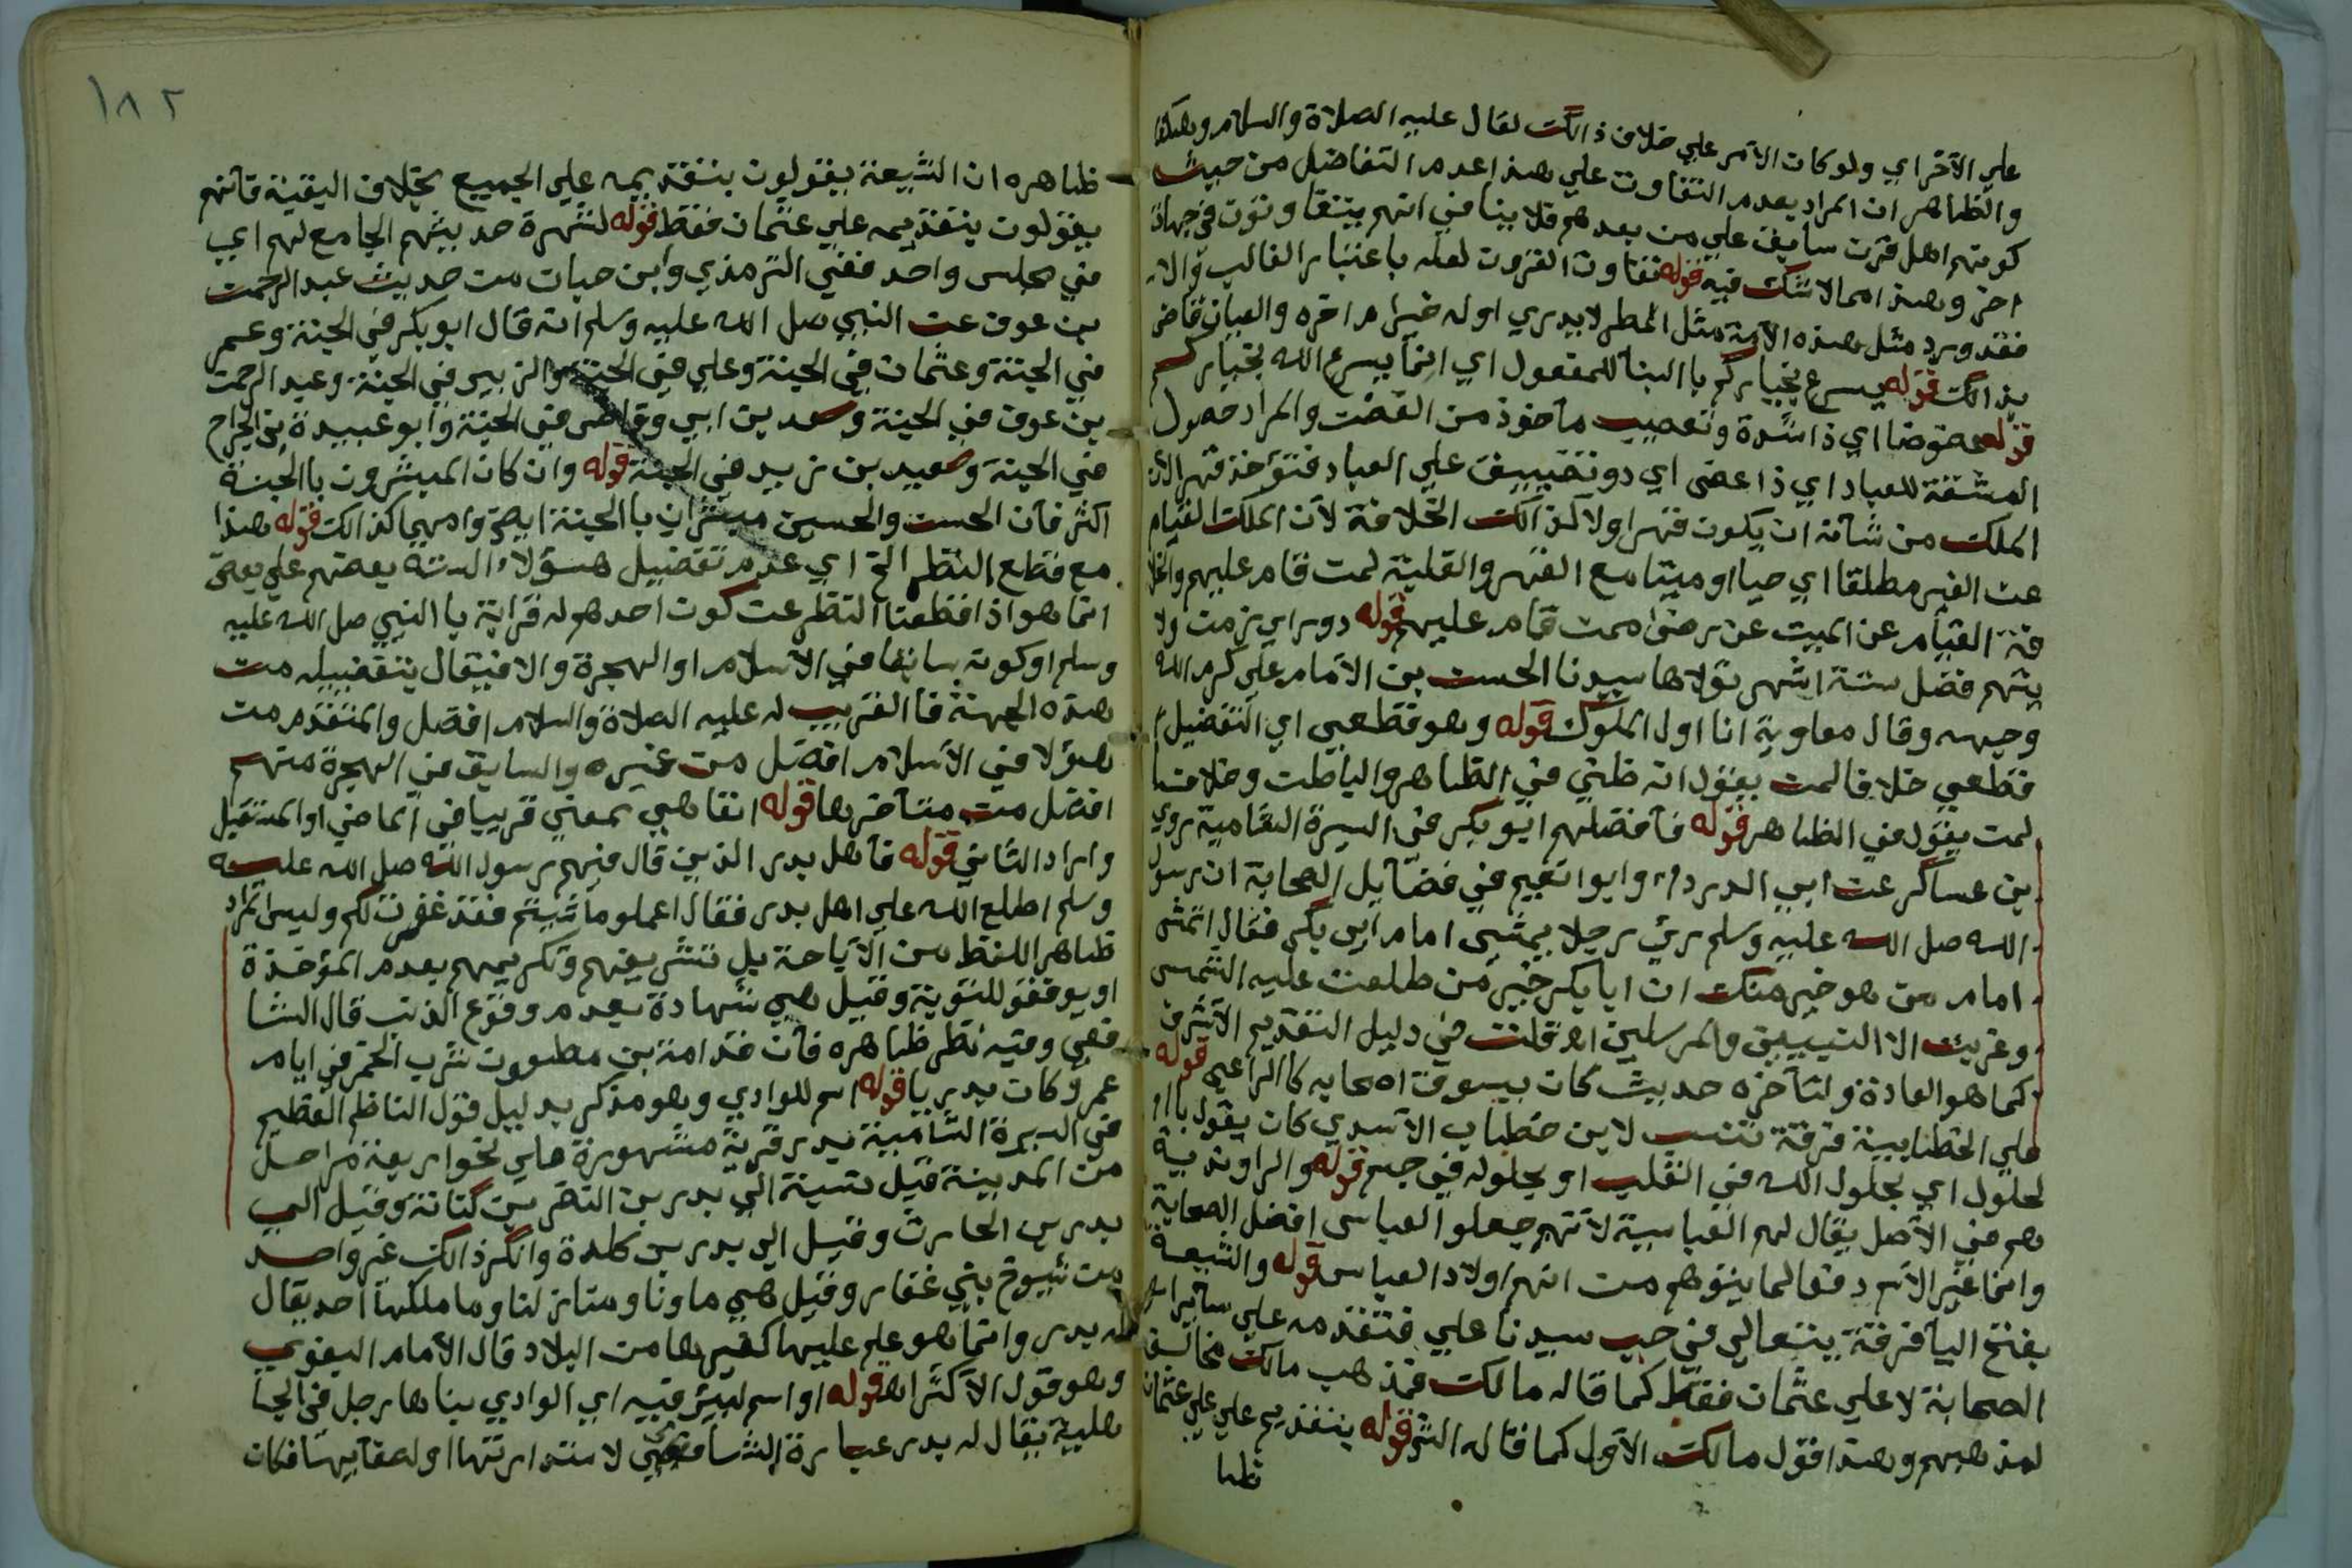 علي الآخر اي ولو كان الامر علي خلاف ذالك لقال عليه الصلاة والسلام وهكذا
والظاهر ان المراد بعدم التفاوت علي هذا عدم التفاضل من حيث
كونهم اهل قرن سابق علي من بعدهم فلا ينافي انهم يتفاوتون في جهات
اخر وهذا مما لا شك فيه قوله تفاوت القرون لعله باعتبار الغالب والا
فقد ورد مثل هذه الآمة مثل المطر لا يدري اوله خيرام اخره والعيان قاض
بذالك قوله يسرع بخياركم باالبنا للمفعول اي انما يسرع الله بخياركم
قوله عضوضا اي ذا شدة وتعصيب مآخوذ من العض والمراد حصول
المشقة للعباد اي ذا عض اي دو تضييق علي العباد فتؤخذ قهرا لان
الملك من شآنه ان يكون قهرا ولا كذالك الخلافة لآن الملك القيام
عن الغير مطلقا اي حيا او ميتا مع القهر والغلبة لمن قام عليهم والخلا
فة القيام عن الميت عن رضي ممن قام عليهم قوله دور اي زمن ولا
يتهم فضل ستة اشهر تولاها سيدنا الحسن بن الامام علي كرم الله
وجهه وقال معاوية انا اول الملوك قوله وهو قطعي اي التفضيل
قطعي خلافا لمن يقول انه ظني في الظاهر والباطن وخلافا
لمن يقول في الظاهر قوله فآفضلهم ابو بكر في السيرة الشامية روي
بن عساكر عن ابي الدرداء وابوا نعيم في فضآيل الصحابة ان رسول
الله صل الله عليه وسلم رئ رجلا يمشي امام ابي بكر فقال اتمشي
امام من هو خير منك ان ابا بكر خير من طلعت عليه الشمس
وغربت الا النبيين والمرسلين اهـ قلت في دليل التقديم الآشرف
كما هو العادة ولتآخره حديث كان يسوق اصحابه كاالراعي قوله
علي الخطابية فرقة تنسب لابن خطاب الآسدي كان يقول باا
لحلول اي بحلول الله في القلب او بحلوله في جسم قوله والراوندية
هم في الآصل يقال لهم العباسية لآنهم جعلوا العباس افضل الصحابة
وانما غير الآسم دفعا لما يتوهم من انهم اولاد العباس قوله والشيعة
بفتح اليا فرقة يتعالي في حب سيدنا علي فتقدمه علي سآير
الصحابة لا علي عثمان فقط كما قاله مالك فمذهب مالك مخالف
لمذهبهم وهذا قول مالك الآول كما قاله الش قوله بتقديم علي علي عثمان
ظا
١٨٢
ظاهره ان الشيعة يقولون بتقديمه علي الجميع بخلاف البقية فآنهم
يقولون بتقديمه علي عثمان فقط قوله لشهرة حديثهم الجامع لهم اي
في مجلس واحد ففي الترمذي وابن حبان من حديث عبد الرحمن
بن عوف عن النبي صل الله عليه وسلم انه قال ابو بكر في الجنة وعمر
في الجنة وعثمان في الجنة وعلي في الجنة والزبير في الجنة وعبد الرحمن
بن عوف في الجنة وسعد بن ابي وقاص في الجنة وابو عبيدة بن الجراح
في الجنة وسعيد بن زيد في الجنة قوله وان كان المبشرون باالجنة
اكثر فآن الحسن والحسين مبشران باالجنة ايض وامهما كذالك قوله هذا
مع قطع النظر الخ اي عدم تفضيل هؤلاء الستة بعضهم علي بعض
انما هو اذا قطعنا النظر عن كون احدهم له قرابة باالنبي صل الله عليه
وسلم او كونه سابقا في الآسلام او الهجرة والا فيقال بتفضيله من
هذه الجهة فاالقريب له عليه الصلاة والسلام افضل والمتقدم من
هؤلا في الآسلام افضل من غيره والسابق في الهجرة منهم
افضل من متآخرها قوله انفا هي بمعني قريبا في الماضي او المستقبل
واراد الثاني قوله فآهل بدر الذين قال فيهم رسول الله صل الله عليه
وسلم اطلع الله علي اهل بدر فقال اعملوا ما شيتم فقد غفرت لكم وليس المراد
ظاهر اللفظ من الآباحة بل تشريفهم وتكريمهم بعدم المؤخذة
او يوفقوا للتوبة وقيل هي شهادة بعدم وقوع الذنب قال الشا
فعي وفيه نظر ظاهره فآن قدامة بن مظعون شرب الخمر في ايام
عمر وكان بدريا قوله اسم للوادي وهو مذكر بدليل قول الناظم العظيم
في السيرة الشامية بدر قرية مشهورة علي نحو اربعة مراحل
من المدينة قيل نسبة الي بدر بن النضر بن كنانة وقيل الي
بدر بن الحارث وقيل الي بدر بن كلدة وانكر ذالك غير واحد
من شيوخ بني غفار وقيل هي ماونا ومنازلنا وما ملكها احد يقال
له بدر وانما هو علم عليها كغيرها من البلاد قال الآمام البغوي
وهو قول الآكثر اهـ قوله او اسم لبئر فيه اي الوادي بناها رجل في الجا
هلية يقال له بدر عبارة الشامي لاستدارتها او لصفآيها فكان